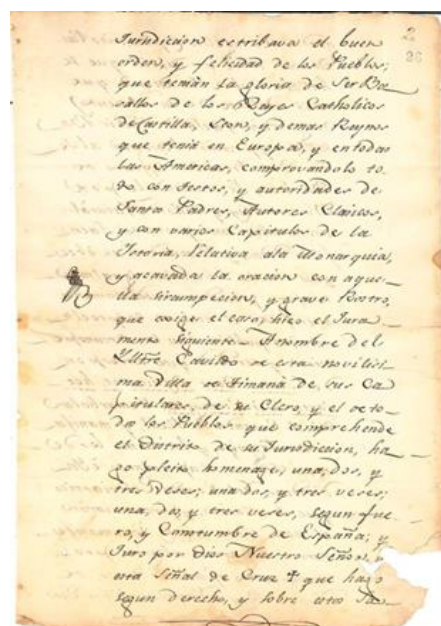 2
26
Jurisdicion estribava el buen
orden, y felicidad de los Pueblos;
que tenian la gloria de Ser Ba-
sallos de los Reyes Catholicos
de Castilla, Leon, y demas Reynos
que tenia en Europa, y en todas
las Americas, comprovandolo to-
do con textos, y autoridades de
Santos Padres, Autores Clasicos,
y con varios Capitulos de la
Istoria, relativa ala Monarquia,
y acavada la oracion con aque-
lla sircumpecion, y grave Rostro,
que exige el caso, hizo el Jura-
mento siguiente - Anombre del
Yllẽ Cavildo de esta novilici-
ma Villa de Timaná de sus Ca-
pitulares, de su Clero, y el de to-
dos los Pueblos que comprehende
el Distrito de su Jurisdicion, ha-
go pleito homenage, una, dos, y
tres veses; una dos, y tres veses;
una, dos, y tres veses, segun fue-
ro, y Constumbre de España; y
Juro por Dios Nuestro Señor, y
esta Señal de Cruz ✝ que hago
segun derecho, y sobre estos Sa-